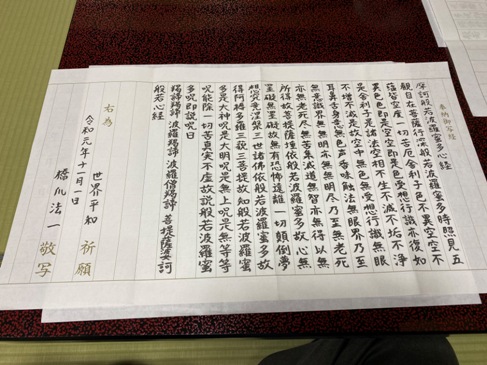 奉納御写経
摩訶般若波羅蜜多心経
観自在菩薩行深般若波羅蜜多時照見五
蘊皆空度一切苦厄舎利子色不異空空不
異色色即是空空即是色受想行識亦復如
是舎利子是諸法空相不生不滅不垢不浄
不増不減是故空中無色無受想行識無眼
耳鼻舌身意無色声香味触法無眼界乃至
無意識界無無明亦無無明尽乃至無老死
亦無老死尽無苦集滅道無智亦無得以無
所得故菩提薩埵依般若波羅蜜多故心無
罣礙無罣礙故無有恐怖遠離一切顛倒夢
想究竟涅槃三世諸仏依般若波羅蜜多故
得阿耨多羅三藐三菩提故知般若波羅蜜
多是大神呪是大明呪是無上呪是無等等
呪能除一切苦真実不虚故説般若波羅蜜
多呪即説呪曰
羯諦羯諦 波羅羯諦 波羅僧羯諦 菩提薩婆訶
般若心経
右為 世界平和 祈願
令和元年十一月一日
橋爪法一 敬写